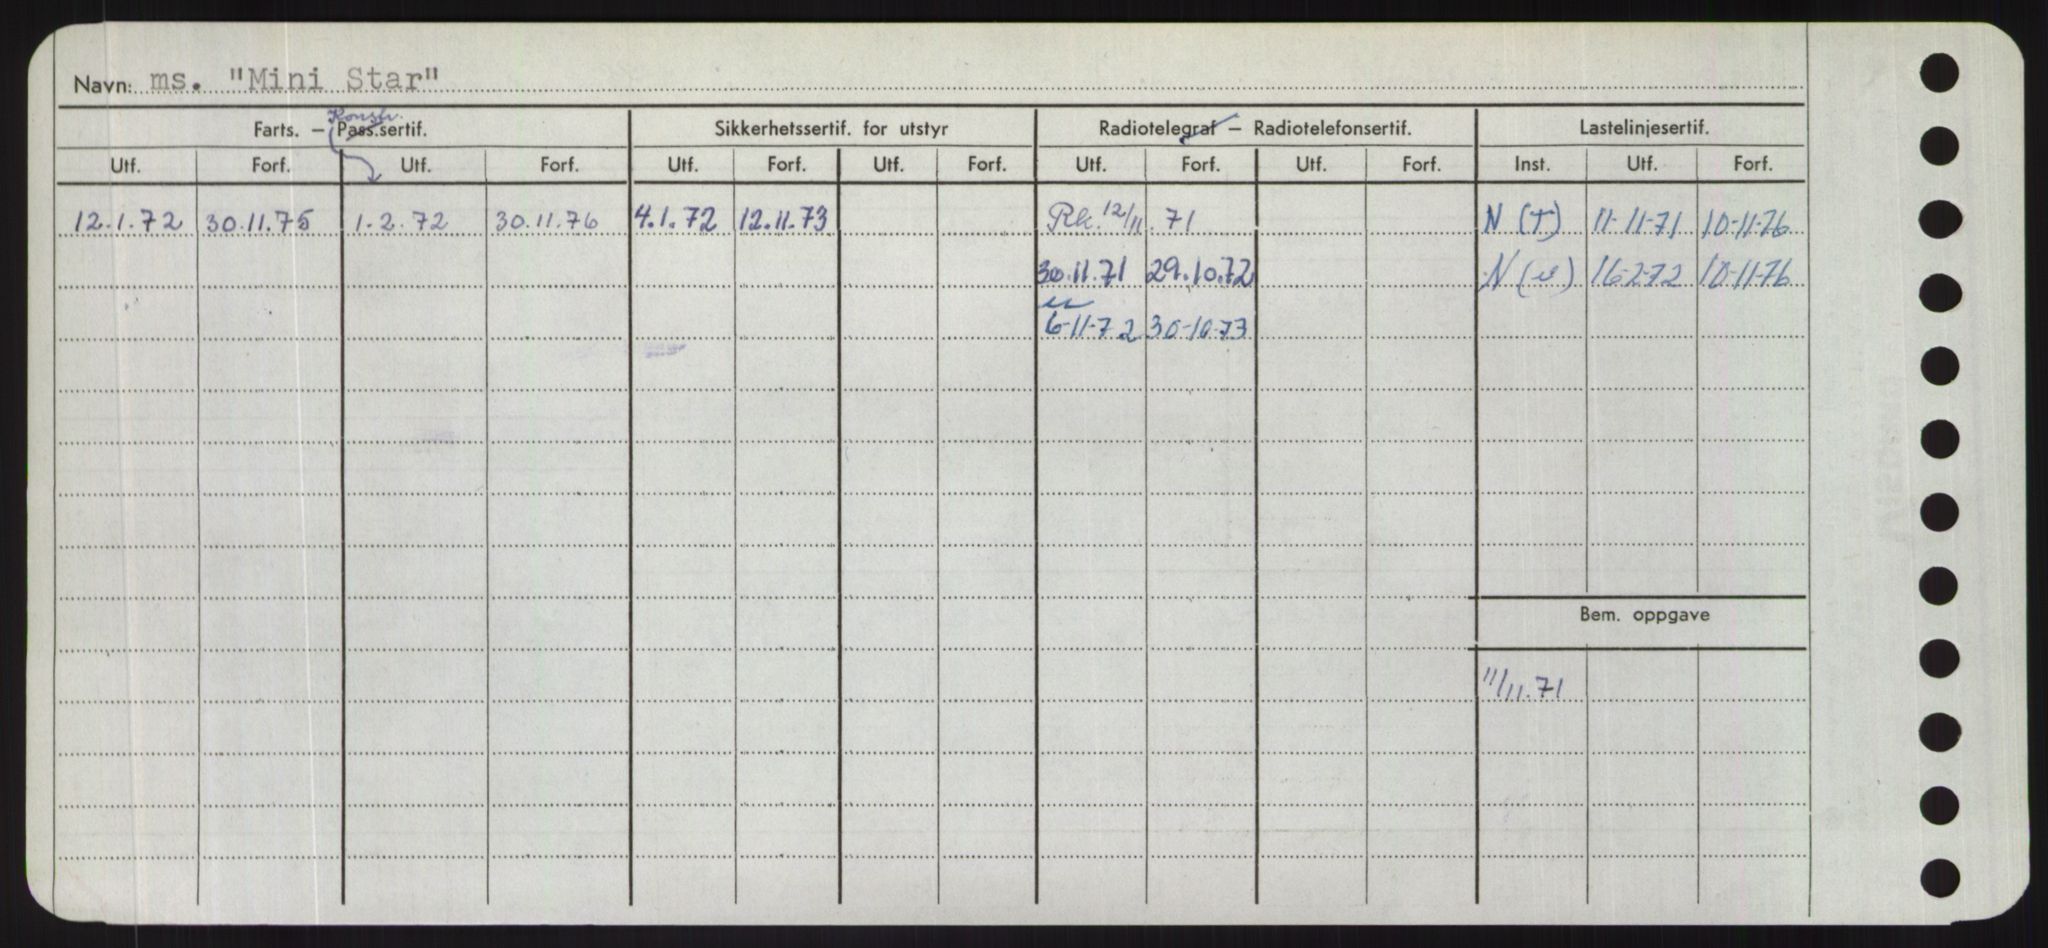 Navn: ms. "Mini Star"
Konstr.
Farts. – Pass.sertif. Sikkerhetssertif. for utstyr Radiotelegraf – Radiotelefonsertif. Lastelinjesertif.
Utf. Forf. Utf. Forf. Utf. Forf. Utf. Forf. Utf. Forf. Utf. Forf. Inst. Utf. Forf.
12.1.72 30.11.75 1.2.72 30.11.76 4.1.72 12.11.73 Rk. 12/11.71 N (T) 11-11-71 10-11-76
30.11.71 29.10.72 N (v) 16-2-72 10-11-76
6-11-72 30-10-73
Bem. oppgave
11/11.71